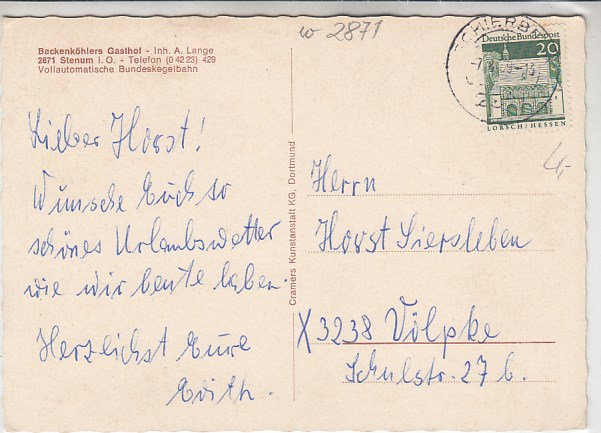 w 2871
Backenköhlers Gasthof - Inh. A. Lange
2871 Stenum i. O. - Telefon (0 42 23) 429
Vollautomatische Bundeskegelbahn
Deutsche Bundespost
20
LORSCH/HESSEN
4,-
Lieber Horst!
Wünsche Euch so
schönes Urlaubswetter
wie wir heute haben.
Herzlichst Eure
Edith.
Cramers Kunstanstalt KG, Dortmund
Herrn
Horst Siersleben
X 3238 Völpke
Schulstr. 27 b.